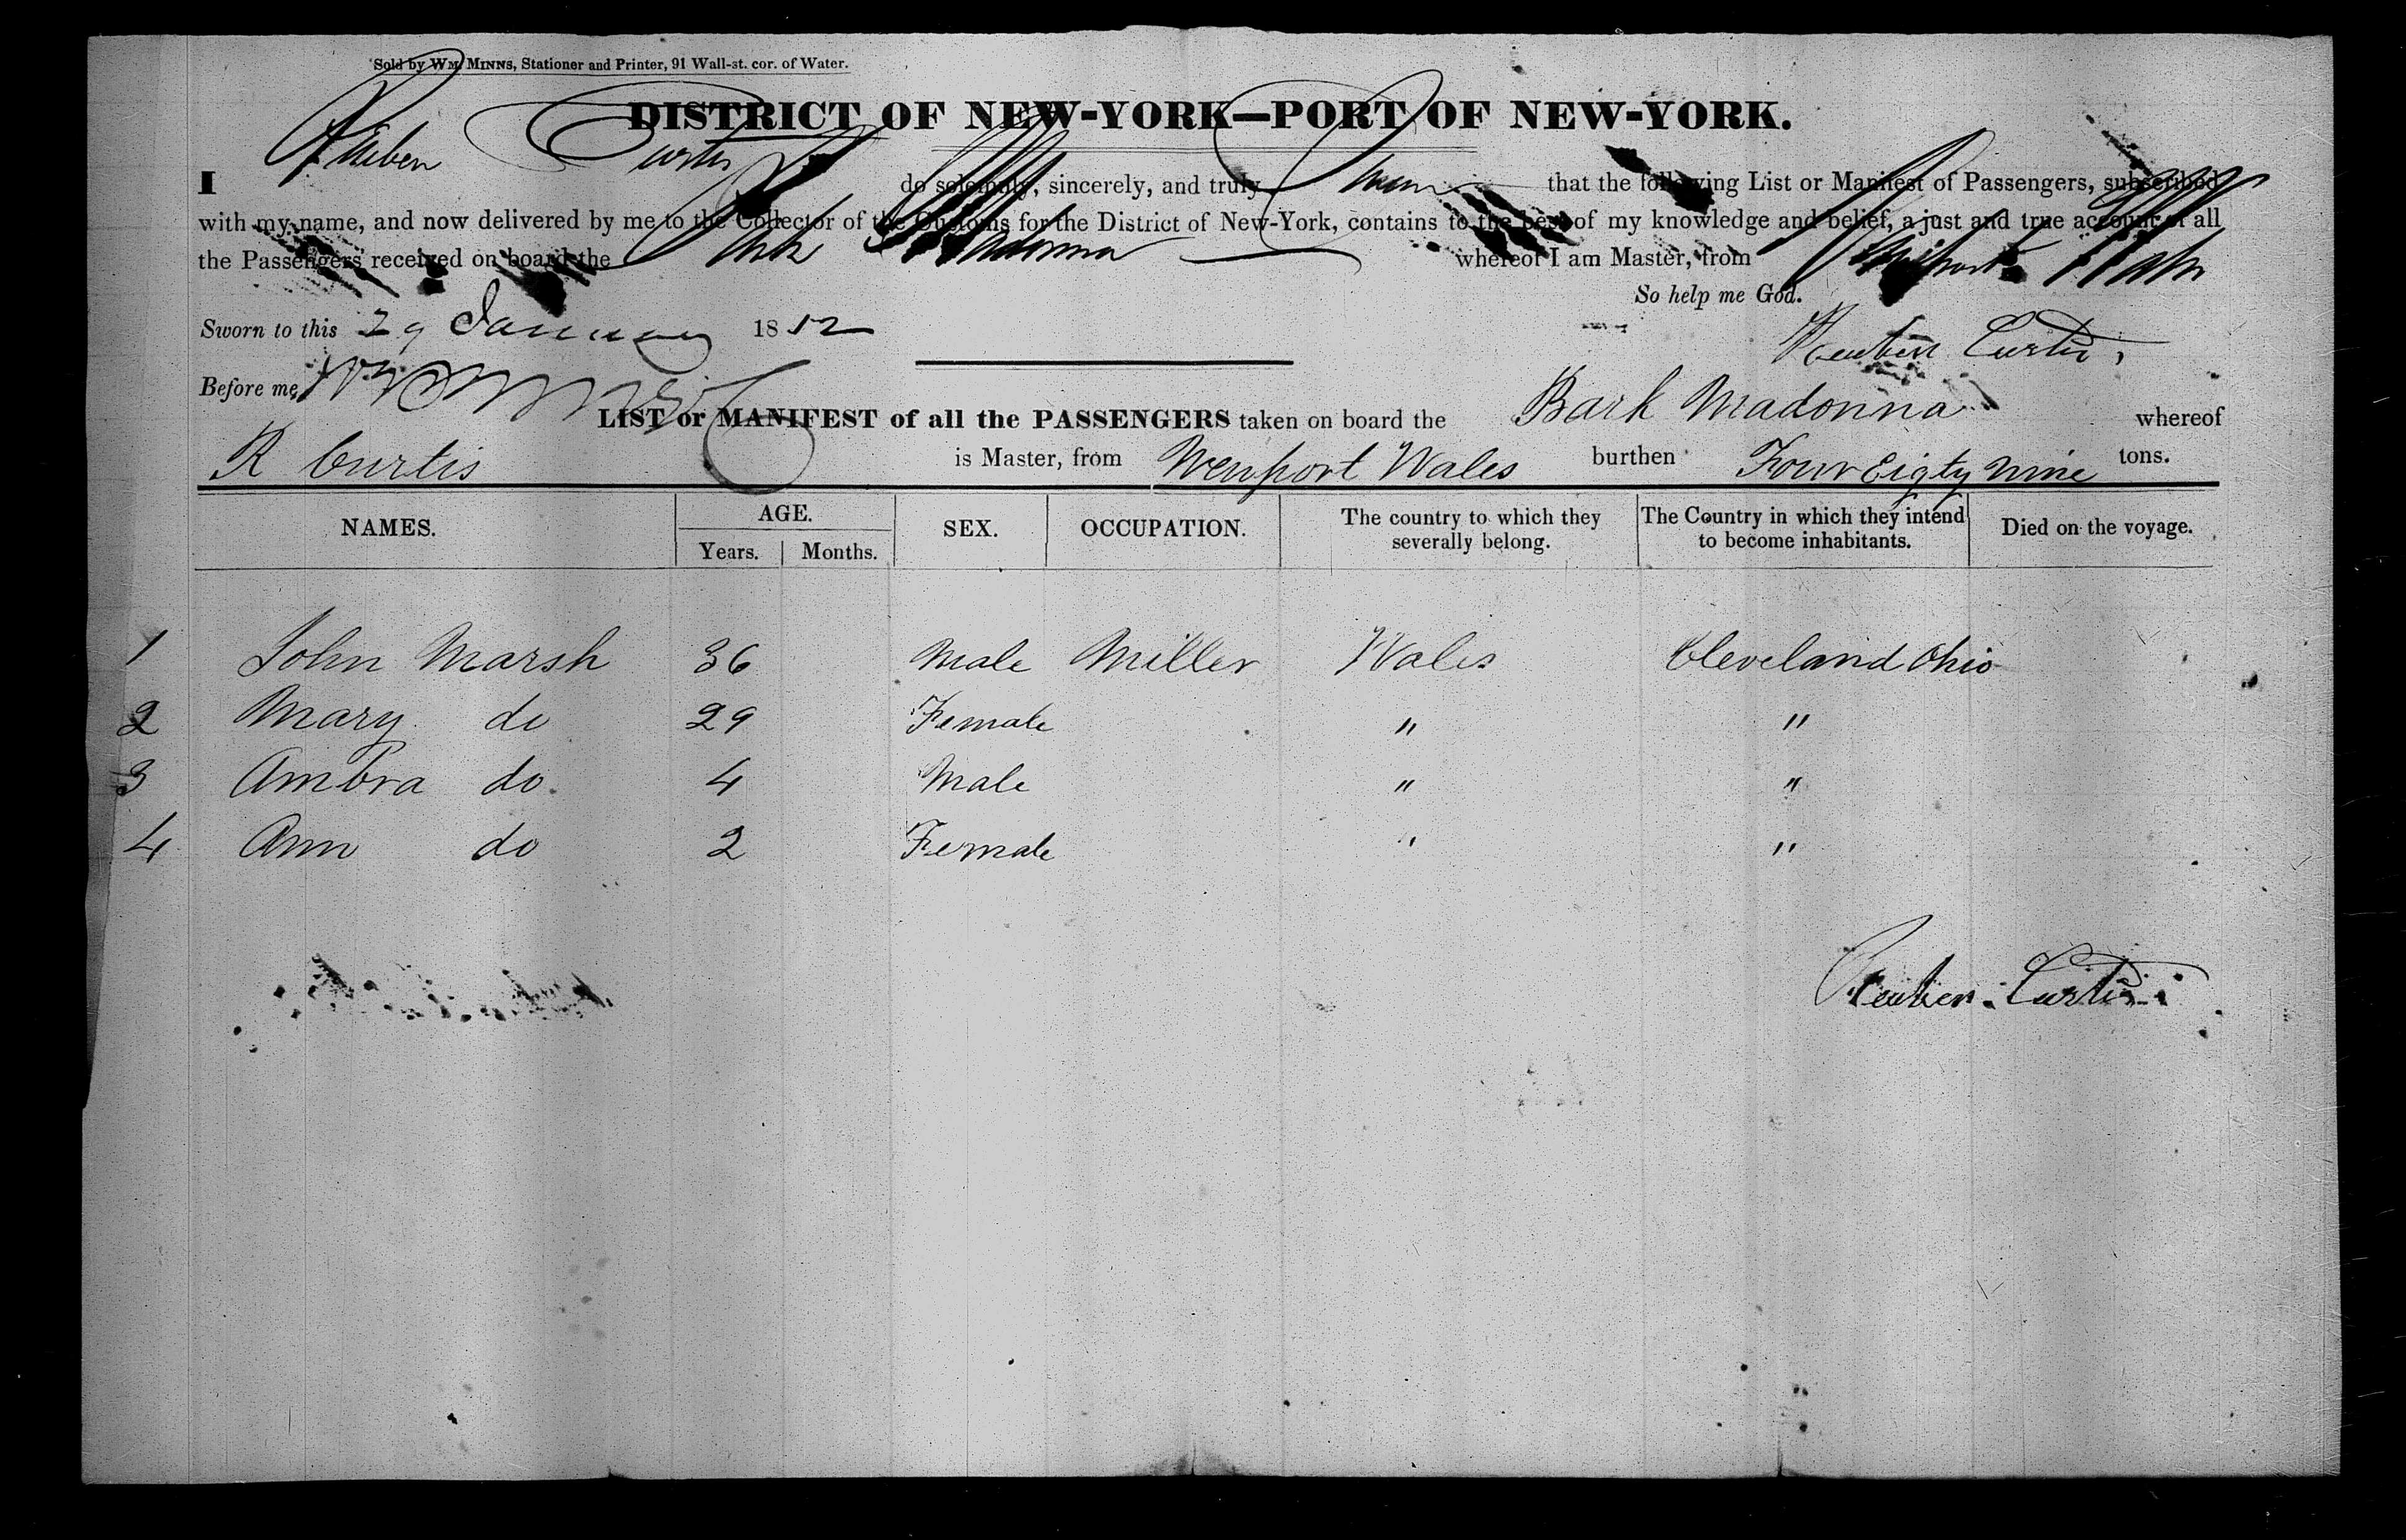 Sold by WM. MINNS, Stationer and Printer, 91 Wall-st. cor. of Water.
DISTRICT OF NEW-YORK—PORT OF NEW-YORK.
I Reuben Curtis do solemnly, sincerely, and truly Swear that the following List or Manifest of Passengers, subscribed
with my name, and now delivered by me to the Collector of the Customs for the District of New-York, contains to the best of my knowledge and belief, a just and true account of all
the Passengers received on board the Bark Madonna whereof I am Master, from Newport Wales
So help me God.
Sworn to this 29 January 1852
Reuben Curtis
Before me,
LIST or MANIFEST of all the PASSENGERS taken on board the Bark Madonna whereof
R Curtis is Master, from Newport Wales burthen Four Eigty Nine tons.
NAMES. AGE. Years. Months. SEX. OCCUPATION. The country to which they severally belong. The Country in which they intend to become inhabitants. Died on the voyage.
1 John Marsh 36 Male Miller Wales Cleveland Ohio
2 Mary do 29 Female " "
3 Ambra do. 4 Male " "
4 Ann do 2 Female " "
Reuben Curtis